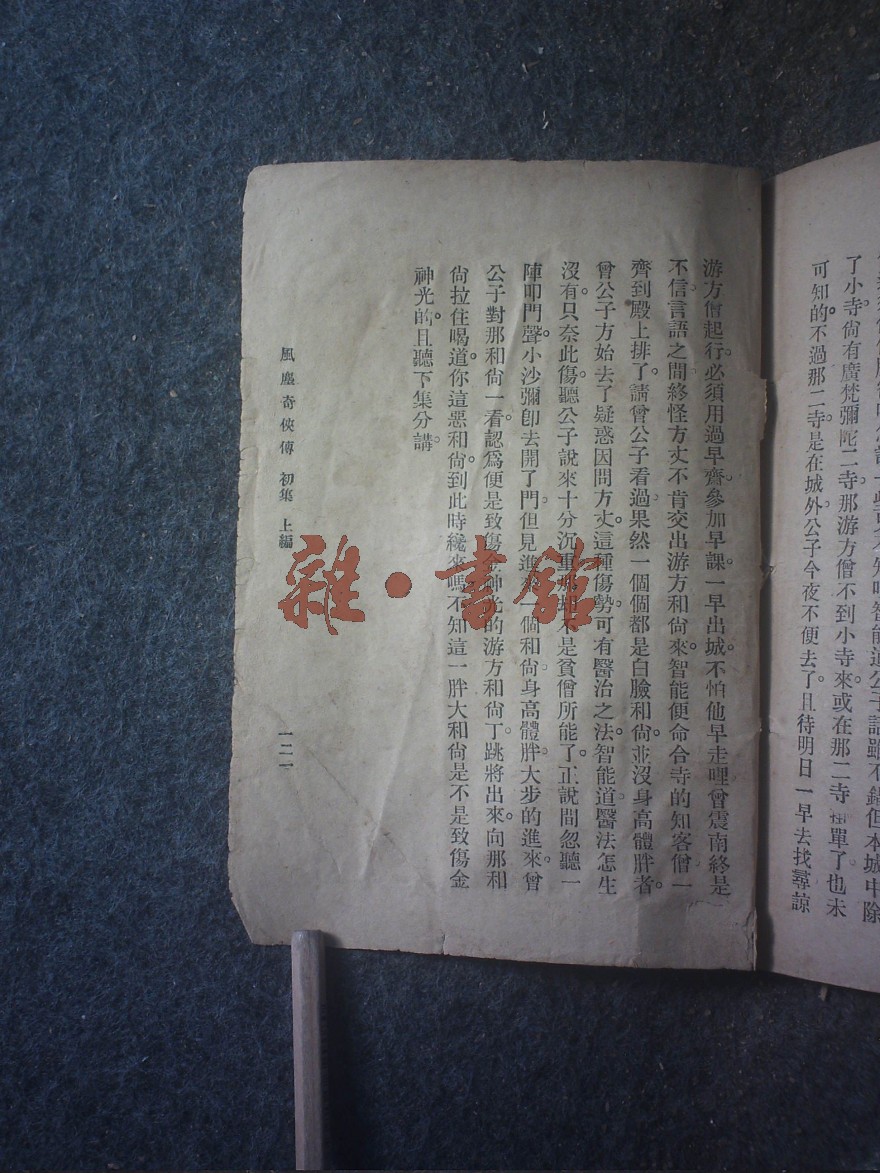 了小寺尙有廣梵彌陀二寺。那游方僧不到小寺來。或在那二寺單了。也未
可知的。不過那二寺。是在城外。公子今夜不便去了。且待明日一早去找尋。諒
游方僧起行。必須用過早齊。參加早課。一早出城。不怕他早走哩。曾震南終是
不信言語之間。終怪方丈不肯交出游方和尙來。智能便命合寺的知客僧一
齊到殿上排了。請曾公子看過。果然一個個都是白臉和尙。並沒身高體胖者。
曾公子方始去了疑惑。因問方丈。這種傷勢。可有醫治之法。智能道。醫法怎生
沒有。只奈此傷。聽公子說來。十分沉重。那却不是貧僧所能了。正說間。忽聽一
陣叩門聲。小沙彌卽去開了門。但見進來一個和尙。身高體胖。大步的進來。曾
公子對那和尙一看。認爲便是致傷金神光的游方和尙了。跳將出來。向那和
尙拉住喝道。你這惡和尙。到此時纔來嗎。不知這一胖大和尙。是不是致傷金
神光的。且聽下集分講。
風塵奇俠傳 初集 上編
一二一
雜·書館